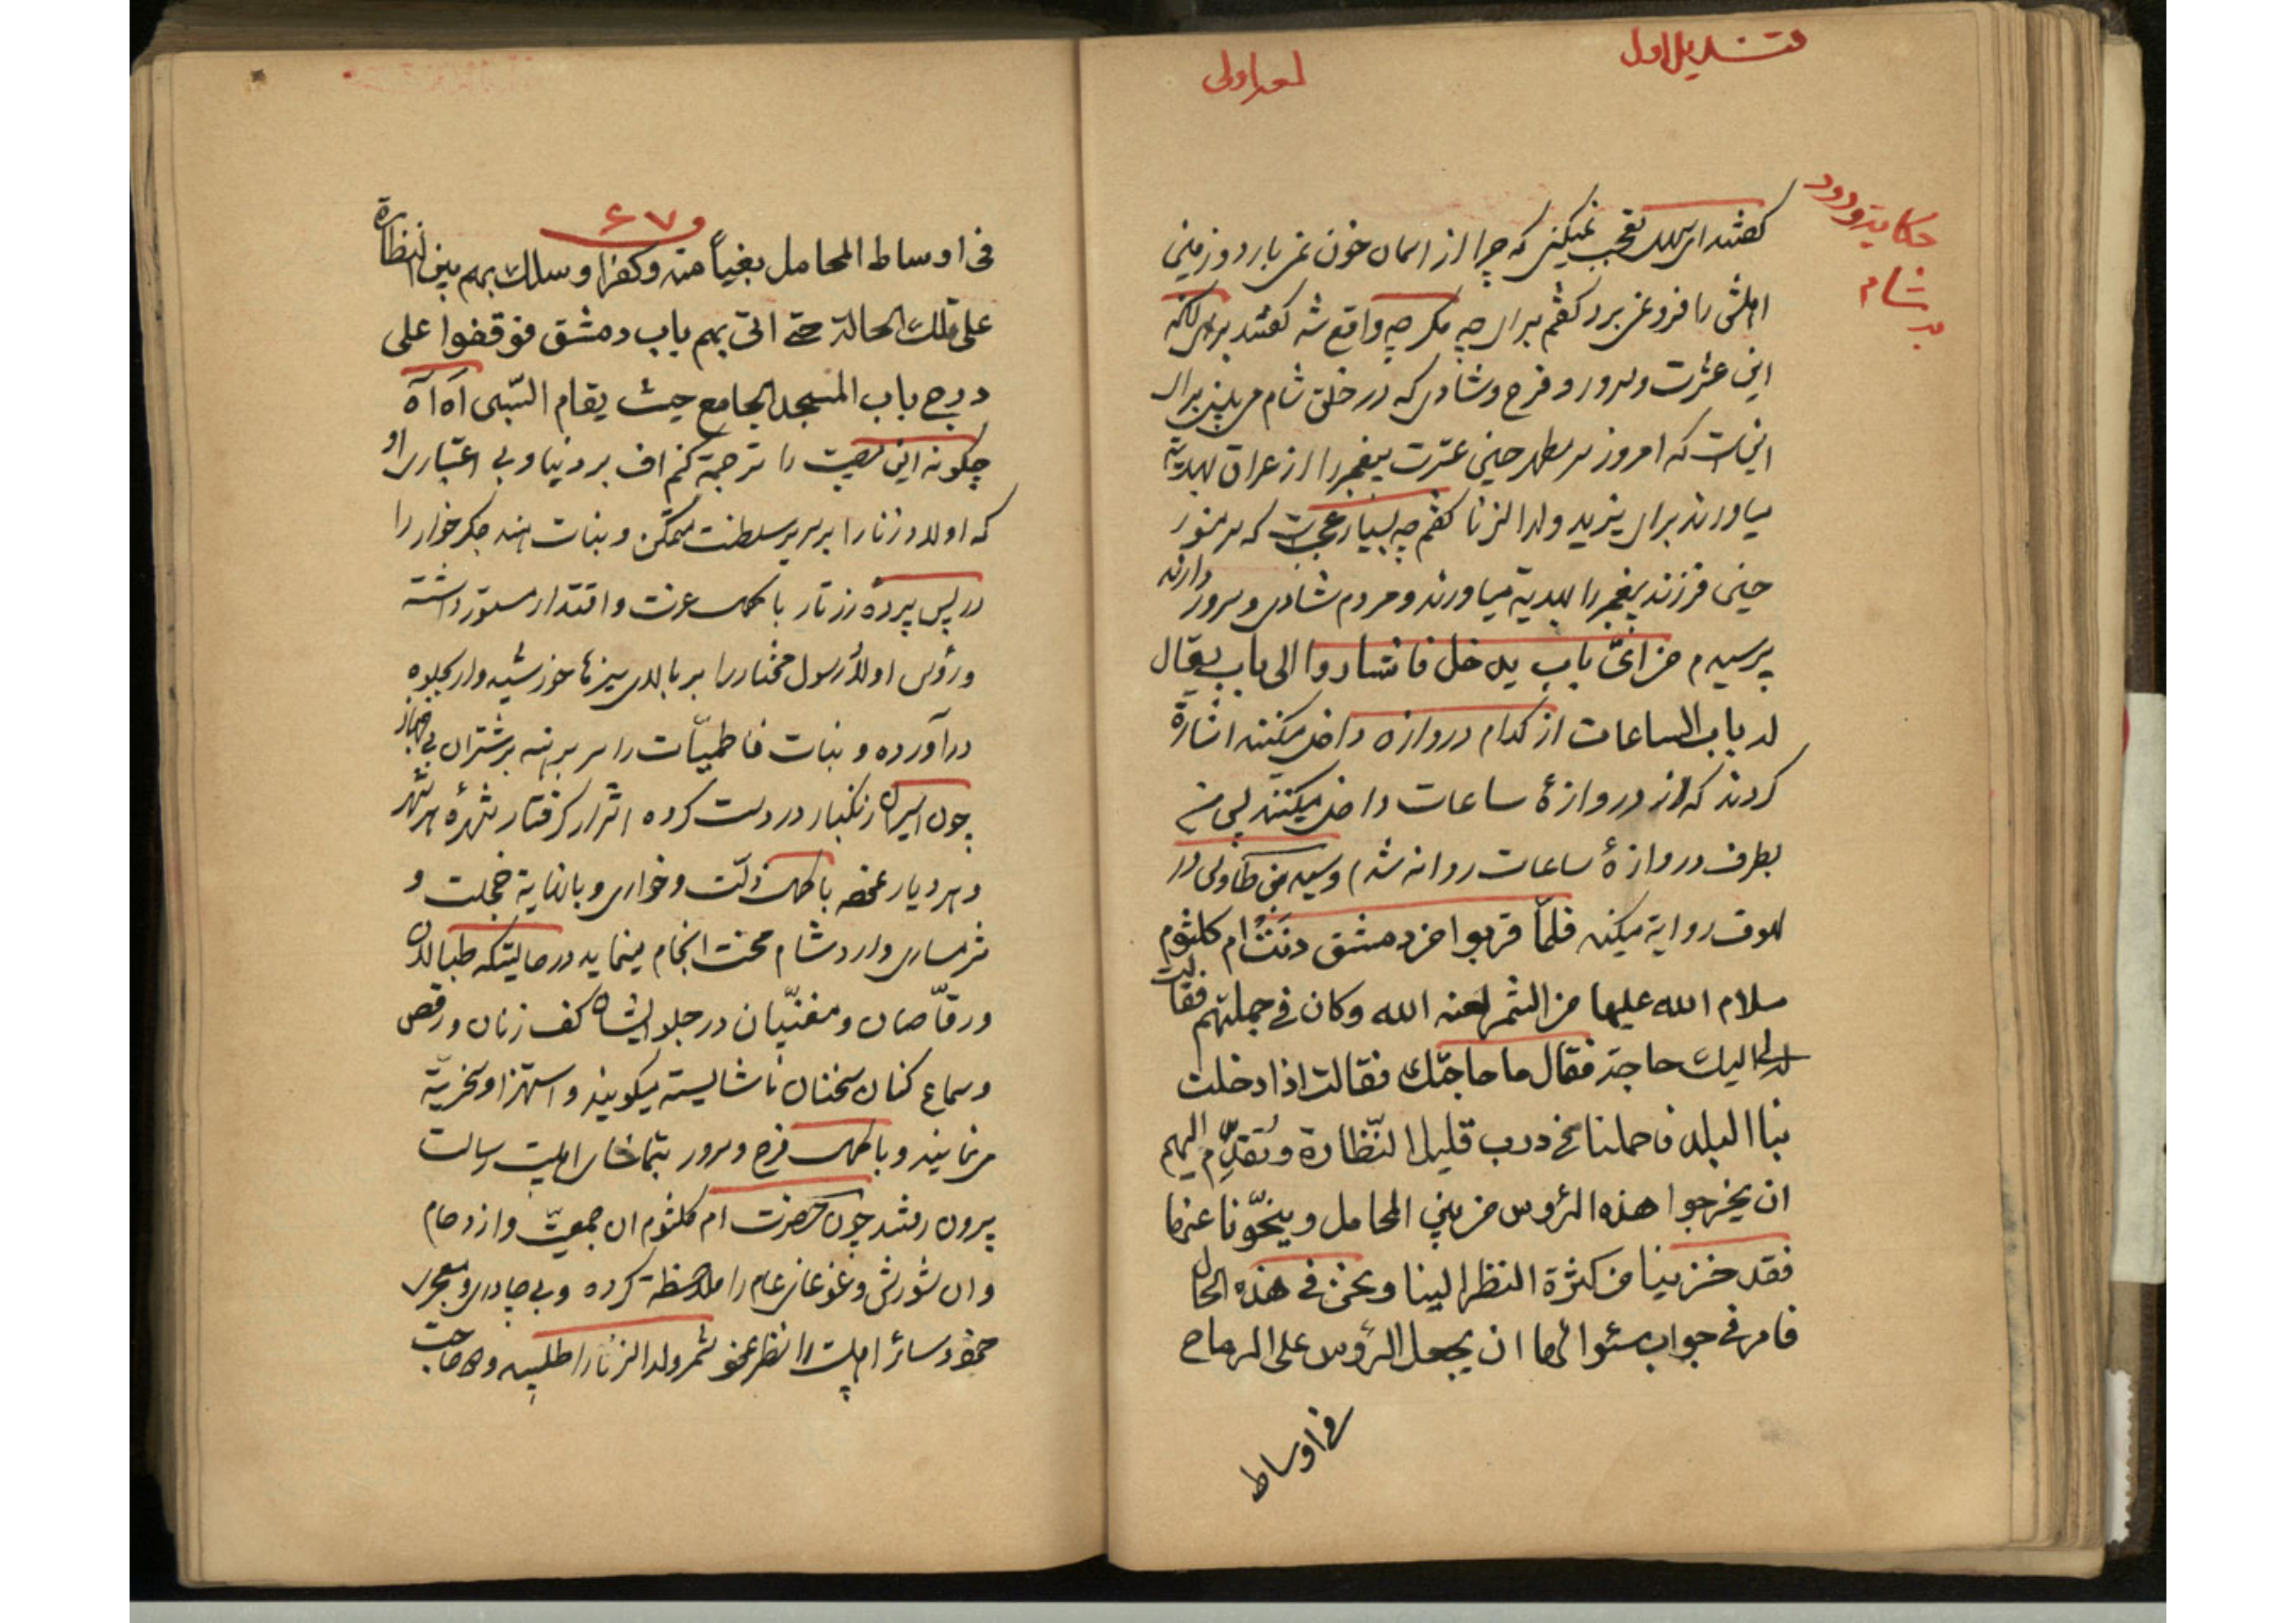 قندیل اول
لمعه اولی
حکایت ورود
بر شام
گفتند ای سهل تعجب نمیکنی که چرا از اسمان خون نمی بارد و زمین
اهلش را فرو نمی برد گفتم برای چه مگر چه واقع شده گفتند برای آنکه
این عشرت و سرور و فرح و شادی که در خلق شام می بینی برای
اینست که امروز سر مطهر حسین عترت پیغمبر را از عراق بهدیه
میاورند برای یزید ولد الزنا گفتم چه بسیار عجبست که سر منور
حسین فرزند پیغمبر را بهدیه میاورند و مردم شادی و سرور دارند
پرسیدم من ایّ باب یدخل فاشاروا الی باب یقال
له باب الساعات از کدام دروازه داخل میکنند اشارة
کردند که از دروازهٔ ساعات داخل میکنند پس من
بطرف دروازهٔ ساعات روانه شدم و سید بن طاوس در
لهوف روایة میکند فلمّا قربوا من دمشق دنت ام کلثوم
سلام الله علیها من الشمر لعنه الله وکان فی جملتهم فقالت
لی الیك حاجة فقال ما حاجتك فقالت اذا دخلت
بنا البلد فاحملنا فی درب قلیل النّظارة وتقدّم الیهم
ان یخرجوا هذه الرؤس من بین المحامل وینحّونا عنها
فقد خزینا من کثرة النظر الینا ونحن فی هذه الحال
فامر فی جواب سئوالها ان یجعل الرؤس علی الرماح
فی اوساط
۶۷
فی اوساط المحامل بغیاً منه وکفرا وسلك بهم بین النظارة
علی تلك الحالة حتی اتی بهم باب دمشق فوقفوا علی
درج باب المسجد الجامع حیث یقام السّبی آه آه
چگونه این مصیبت را ترجمة کنم اف بر دنیا و بی اعتباری او
که اولاد زنا را بر سریر سلطنت متمکن و بنات هند جگر خوار را
در پس پردهٔ زرتار با کمال عزت و اقتدار مستور داشته
و رؤس اولاد رسول مختار را بر بالای نیزها خورشید وار بجلوه
در آورده و بنات فاطمیّات را سر برهنه بر شتران بی جهاز
چون اسیران زنگبار در دست کرده اشرار گرفتار شهرهٔ هر شهر
و هر دیار نموده با کمال ذلّت و خواری و بانهایة خجلت و
شرمساری وارد شام محنت انجام مینماید در حالیتکه طبالان
و رقّاصان و مغنّیان در جلو ایشان کف زنان و رقص
و سماع کنان سخنان ناشایسته میگویند و استهزا و سخریّة
می نمایند و با کمال فرح و سرور بتماشای اهلبیت رسالت
بیرون رفتند چون حضرت ام کلثوم ان جمعیّت و ازدحام
و ان شورش و غوغای عام را ملاحظة کرده و بی چادری و معجری
خود و سائر اهلبیت را نظر نمود شمر ولد الزنا را طلبید و حاجت